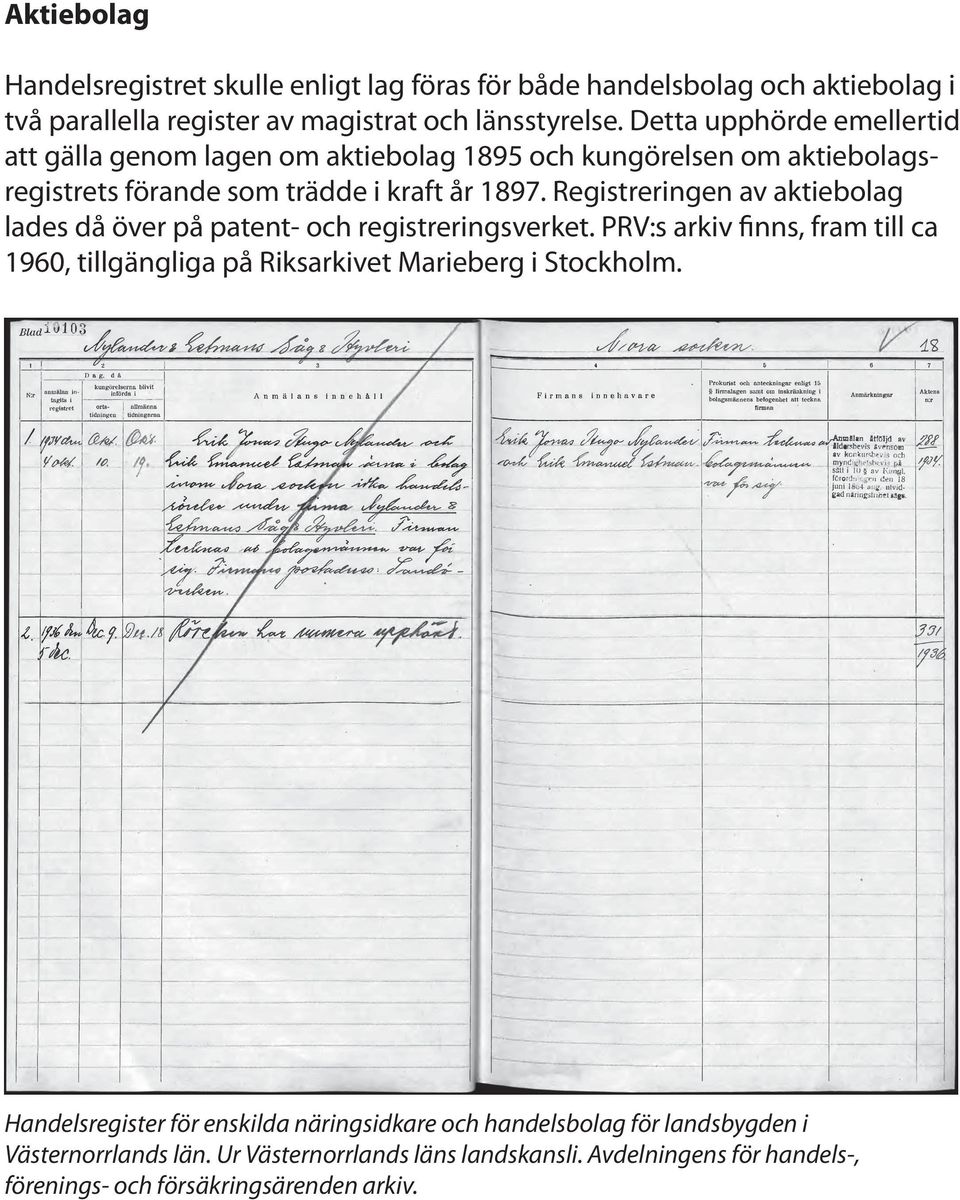 Aktiebolag
Handelsregistret skulle enligt lag föras för både handelsbolag och aktiebolag i
två parallella register av magistrat och länsstyrelse. Detta upphörde emellertid
att gälla genom lagen om aktiebolag 1895 och kungörelsen om aktiebolags-
registrets förande som trädde i kraft år 1897. Registreringen av aktiebolag
lades då över på patent- och registreringsverket. PRV:s arkiv finns, fram till ca
1960, tillgängliga på Riksarkivet Marieberg i Stockholm.
Blad 10103
Nylander & Estmans Såg & Hyvleri
Nora socken. 18
1 2 3 4 5 6 7
N:r
Dag, då
anmälan in-
tagits i
registret
kungörelserna blivit
införda i
orts-
tidningen
allmänna
tidningarna
Anmälans innehåll
Firmans innehavare
Prokurist och anteckningar enligt 15
§ firmalagen samt om inskränkning i
bolagsmännens befogenhet att teckna
firman
Anmärkningar
Aktens
n:r
1. 1934 den
4 okt.
Okt.
10.
Okt.
19.
Erik Jonas Hugo Nylander och
Erik Emanuel Estman ärna i bolag
inom Nora socken idka handels-
rörelse under firma Nylander &
Estmans Såg & Hyvleri. Firman
tecknas av bolagsmännen var för
sig. Firmans postadress: Sandö-
verken.
Erik Jonas Hugo Nylander
och Erik Emanuel Estman.
Firman tecknas av
bolagsmännen
var för sig
Anmälan åtföljd av
åldersbevis ävensom
av konkursbevis och
myndighetsbevis på
sätt i 10 § av Kungl.
förordningen den 18
juni 1864 ang. utvid-
gad näringsfrihet säges.
288
1934.
2. 1936 den
5 dec.
Dec. 9.
Dec. 18
Rörelsen har numera upphört.
391
1936
Handelsregister för enskilda näringsidkare och handelsbolag för landsbygden i
Västernorrlands län. Ur Västernorrlands läns landskansli. Avdelningens för handels-,
förenings- och försäkringsärenden arkiv.